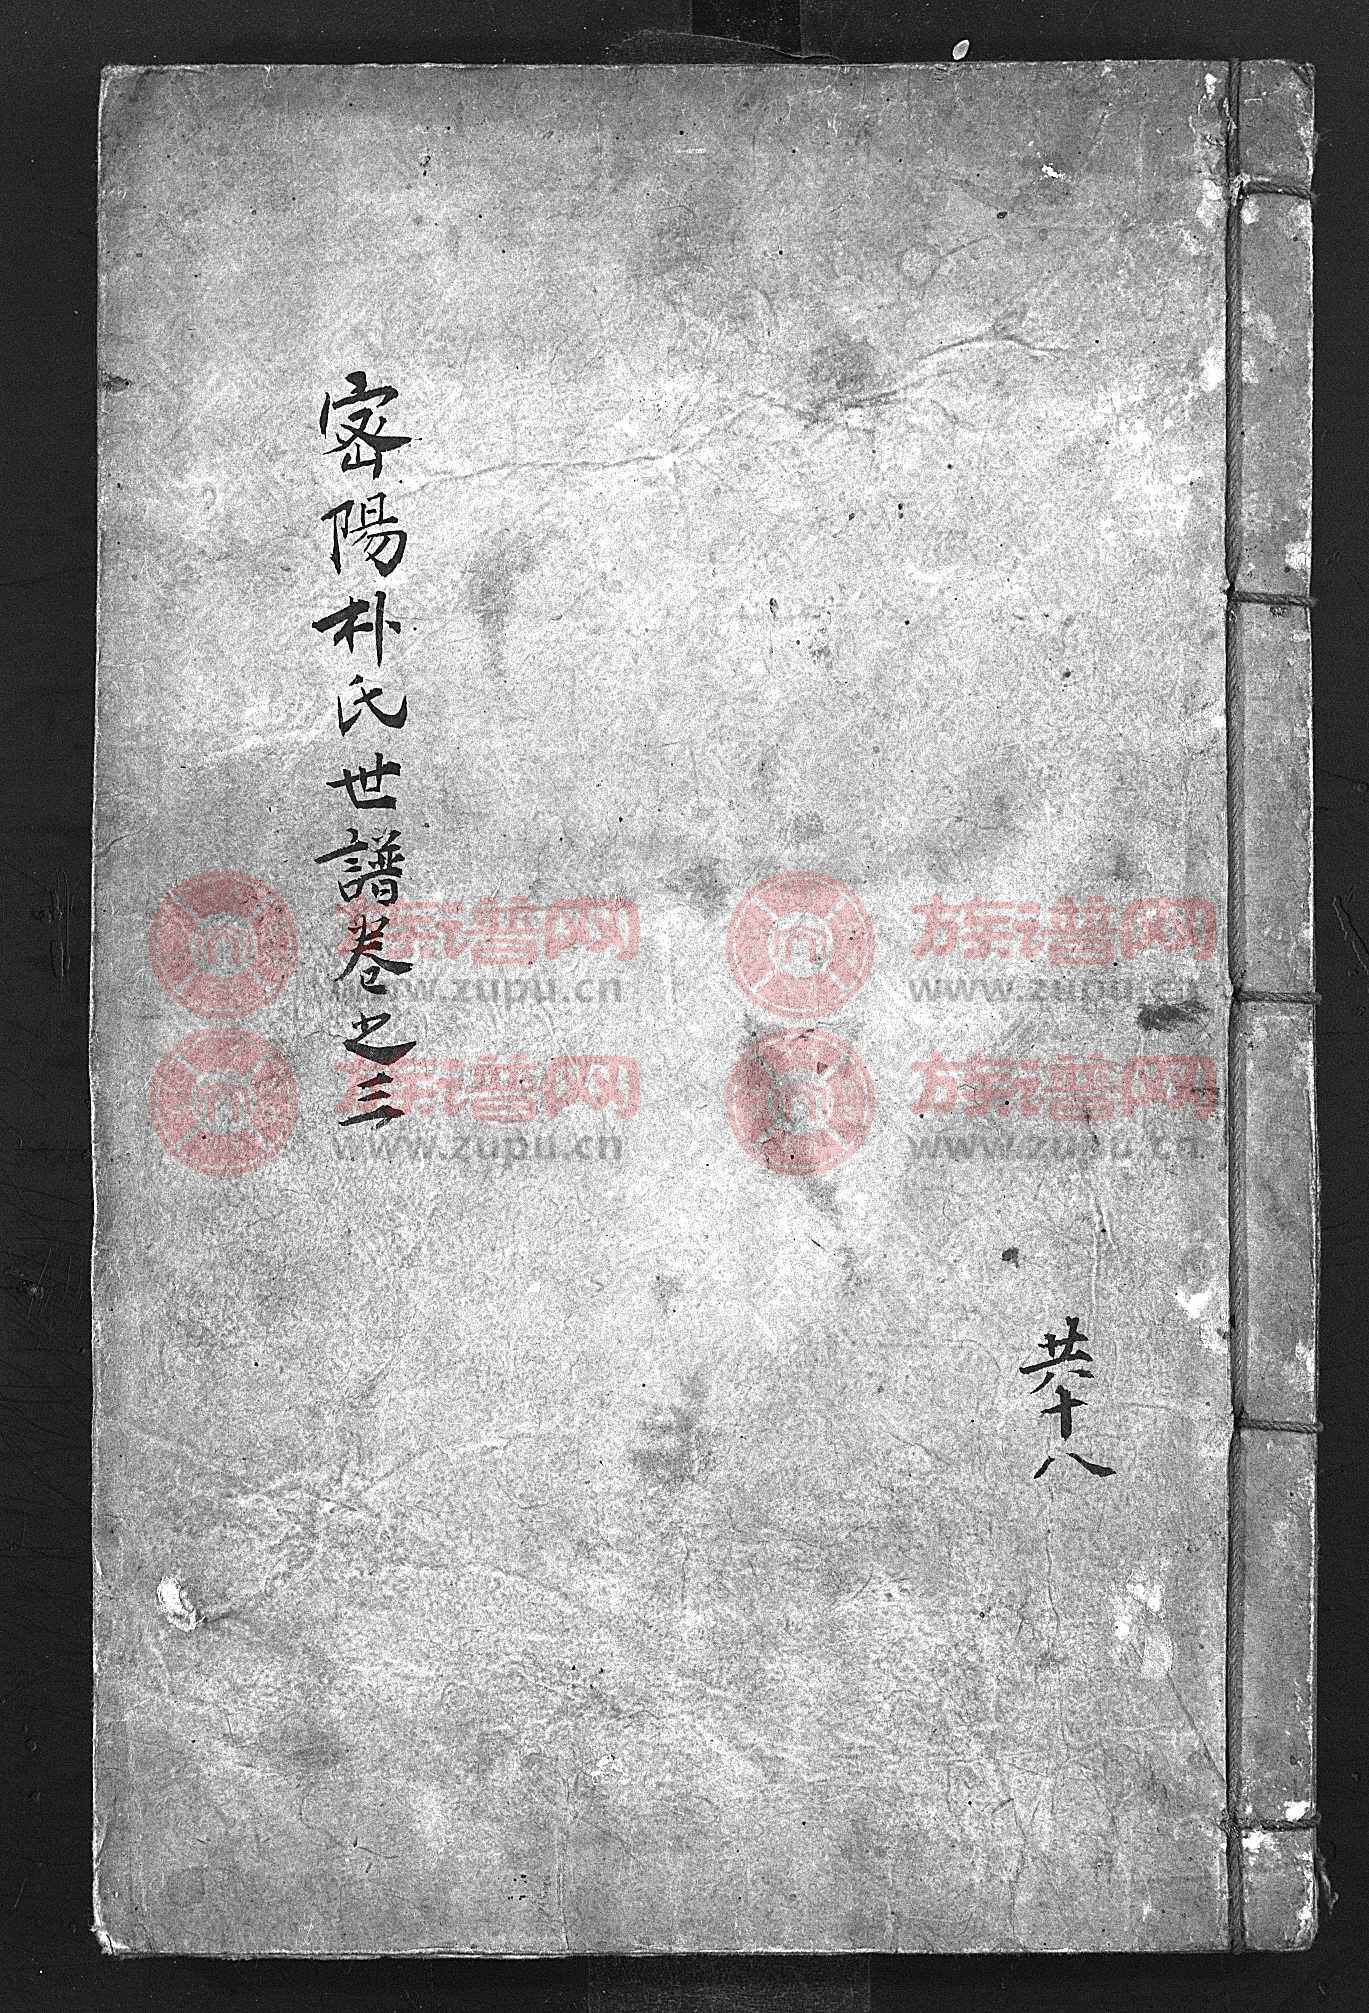 共十八
密陽朴氏世譜卷之三
族谱网 族谱网
www.zupu.cn www.zupu.cn
族谱网 族谱网
www.zupu.cn www.zupu.cn